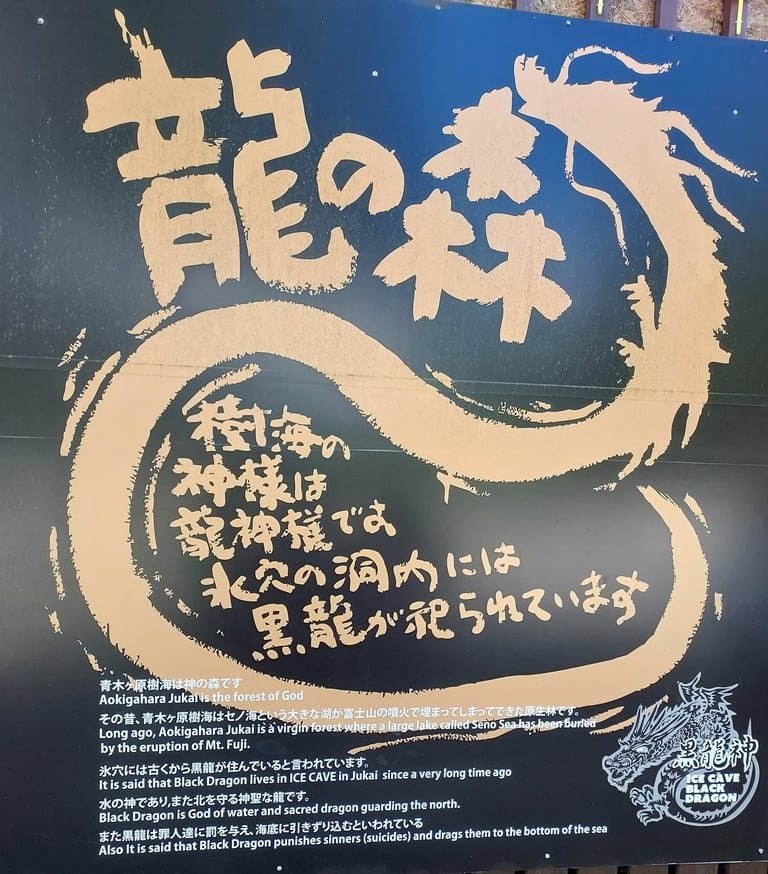 龍の森
樹海の
神様は
龍神様です
氷穴の洞内には
黒龍が祀られています
青木ヶ原樹海は神の森です
Aokigahara Jukai is the forest of God
その昔、青木ヶ原樹海はセノ海という大きな湖が富士山の噴火で埋まってしまってできた原生林です。
Long ago, Aokigahara Jukai is a virgin forest where a large lake called Seno Sea has been buried
by the eruption of Mt. Fuji.
氷穴には古くから黒龍が住んでいると言われています。
It is said that Black Dragon lives in ICE CAVE in Jukai since a very long time ago
水の神であり、また北を守る神聖な龍です。
Black Dragon is God of water and sacred dragon guarding the north.
また黒龍は罪人達に罰を与え、海底に引きずり込むといわれている
Also It is said that Black Dragon punishes sinners (suicides) and drags them to the bottom of the sea
黒龍神
ICE CAVE
BLACK
DRAGON